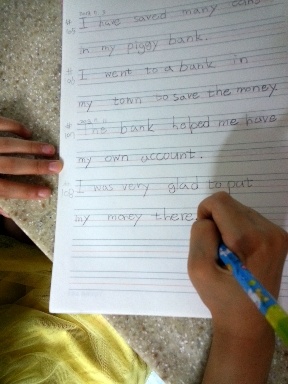 I have saved many coins
in my piggy bank.
I went to a bank in
my town so save the money
The bank helped me have
my own account.
I was very glad to put
my money there.